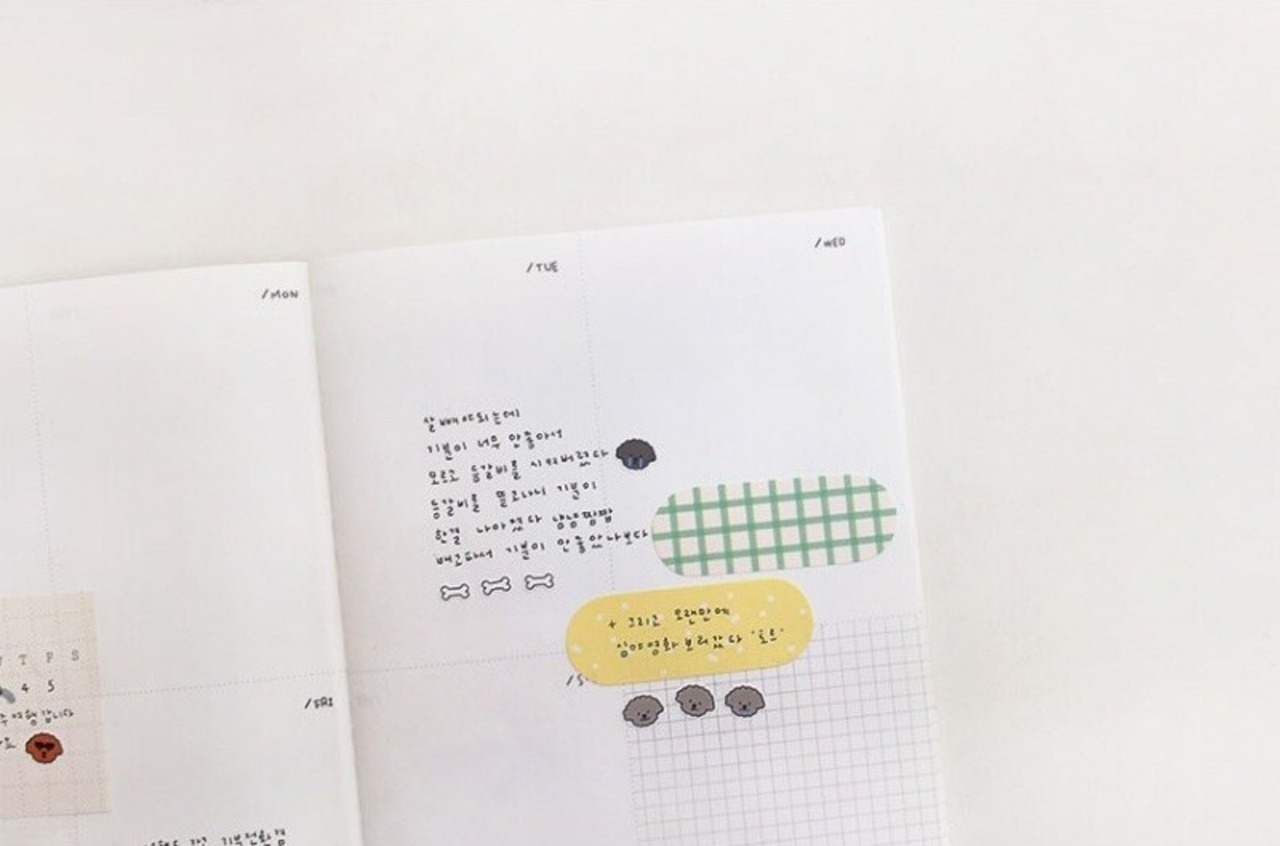 /MON
/TUE
/WED
살빼야되는데
기분이 너무 안좋아서
모르고 등갈비를 시켜버렸다
등갈비를 뜯고나니 기분이
한결 나아졌다 냠냠짭짭
배고파서 기분이 안좋았나보다
+ 그리고 오랜만에
심야영화 보러갔다 '도르'
T F S
4 5
여행갑니다
/FRI
/S
기분전환겸